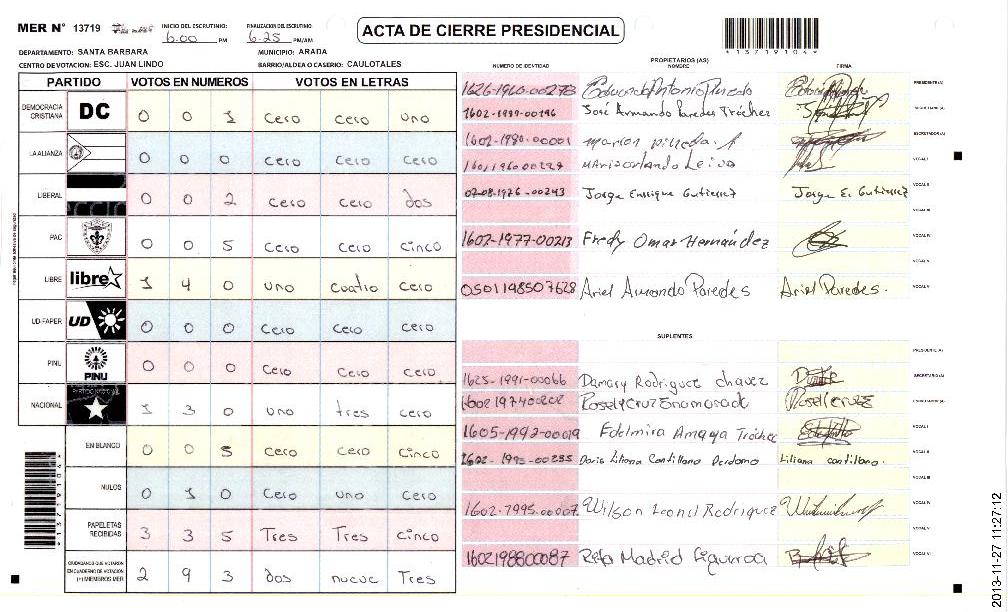 MER N° 13719
INICIO DEL ESCRUTINIO: 6:00 PM
FINALIZACION DEL ESCRUTINIO 6:25 PM/AM
ACTA DE CIERRE PRESIDENCIAL
*13719104*
DEPARTAMENTO: SANTA BARBARA MUNICIPIO: ARADA
CENTRO DE VOTACION: ESC. JUAN LINDO BARRIO/ALDEA O CASERIO: CAULOTALES
PARTIDO VOTOS EN NUMEROS VOTOS EN LETRAS
DEMOCRACIA CRISTIANA DC 0 0 1 Cero cero uno
LA ALIANZA 0 0 0 cero cero cero
LIBERAL 0 0 2 cero cero dos
PAC 0 0 5 cero cero cinco
LIBRE libre 1 4 0 uno cuatro cero
UD-FAPER UD 0 0 0 cero cero cero
PINU PINU 0 0 0 cero cero cero
NACIONAL 1 3 0 uno tres cero
EN BLANCO 0 0 5 cero cero cinco
NULOS 0 1 0 cero uno cero
PAPELETAS RECIBIDAS 3 3 5 Tres Tres cinco
CIUDADANOS QUE VOTARON EN CUADERNO DE VOTACION (+) MIEMBROS MER 2 9 3 dos nueve Tres
PROPIETARIOS (AS)
NUMERO DE IDENTIDAD NOMBRE FIRMA
1626-1960-00278 PRESIDENTE(A)
1602-1999-00196 José Armando Paredes Tróchez SECRETARIO(A)
1602-1980-00001 ESCRUTADOR(A)
VOCAL I
0208-1976-00243 Jorge Enrique Gutierrez Jorge E. Gutierrez VOCAL II
VOCAL III
1602-1977-00213 Fredy Omar Hernández VOCAL IV
VOCAL V
0501198507628 Ariel Armando Paredes Ariel Paredes. VOCAL VI
SUPLENTES
PRESIDENTE (A)
1625-1991-00066 Damary Rodriguez chavez SECRETARIO(A)
ESCRUTADOR(A)
1605-1992-00019 Edelmira Amaya Tróchez VOCAL I
1602-1995-00235 Doris Liliana Cantillano Perdomo Liliana cantillano. VOCAL II
VOCAL III
1602-1995-00007 Wilson Leonel Rodriguez VOCAL IV
VOCAL V
1602198800087 Rita Madrid Figueroa VOCAL VI
*13719104*
2013-11-27 11:27:12